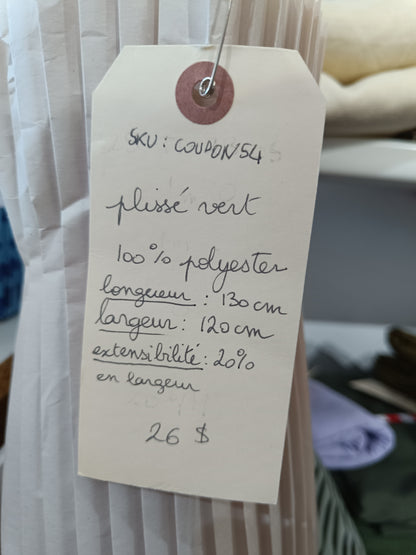 SKU: COUPON54
plissé vert
100% polyester
longueur : 130cm
largeur : 120cm
extensibilité : 20%
en largeur
26 $